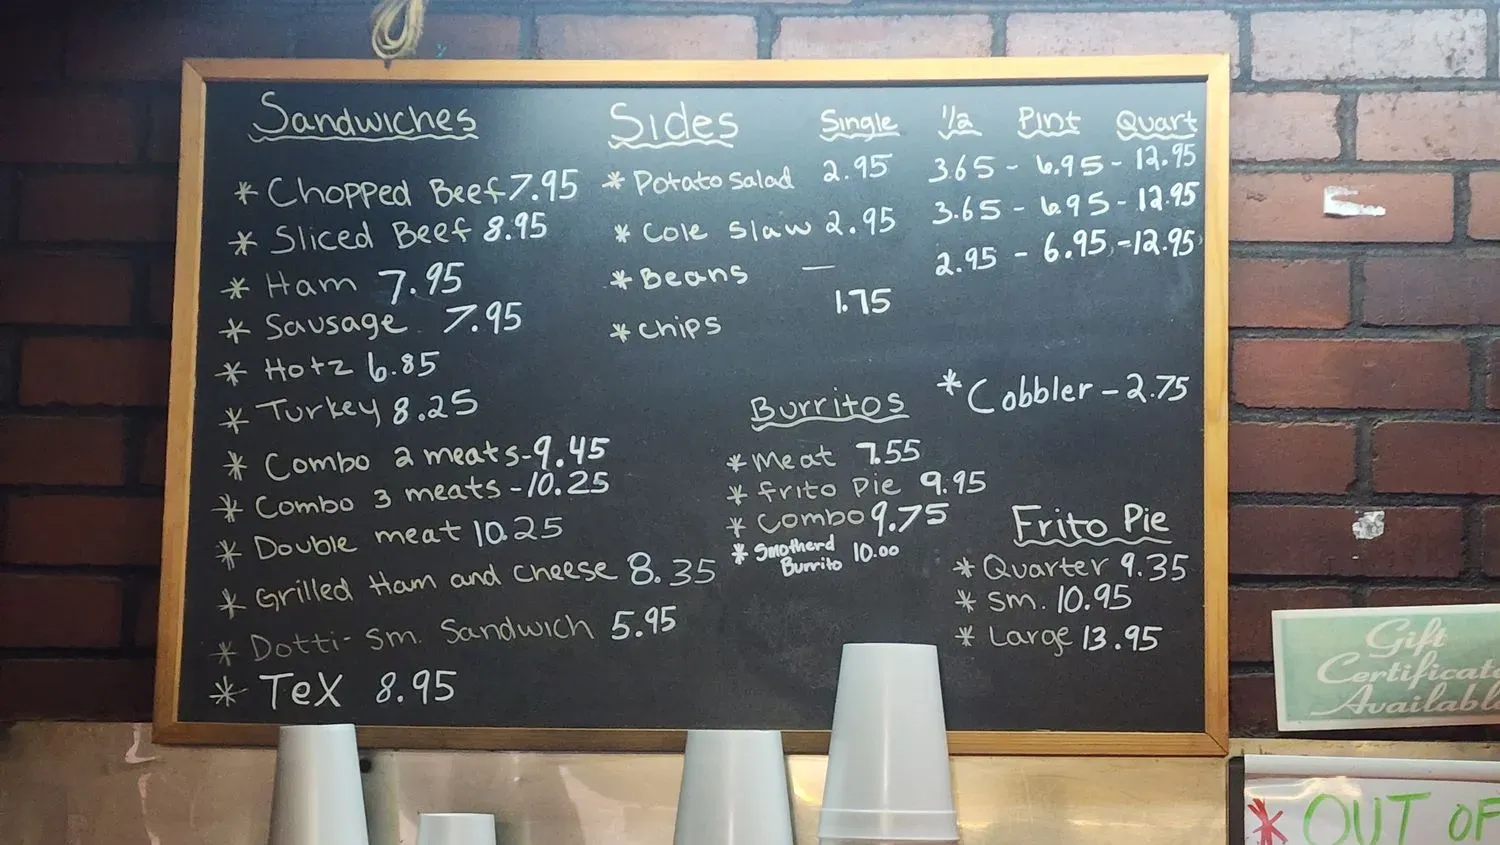 Sandwiches
* Chopped Beef 7.95
* Sliced Beef 8.95
* Ham 7.95
* Sausage 7.95
* Hotz 6.85
* Turkey 8.25
* Combo 2 meats - 9.45
* Combo 3 meats - 10.25
* Double meat 10.25
* Grilled Ham and Cheese 8.35
* Dotti - sm. Sandwich 5.95
* TeX 8.95
Sides Single 1/2 Pint Quart
* Potato salad 2.95 3.65 - 6.95 - 12.95
* Cole Slaw 2.95 3.65 - 6.95 - 12.95
* Beans — 2.95 - 6.95 - 12.95
* Chips 1.75
* Cobbler - 2.75
Burritos
* Meat 7.55
* Frito Pie 9.95
* Combo 9.75
* Smotherd
Burrito 10.00
Frito Pie
* Quarter 9.35
* Sm. 10.95
* Large 13.95
Gift
Certificate
Available
* OUT OF